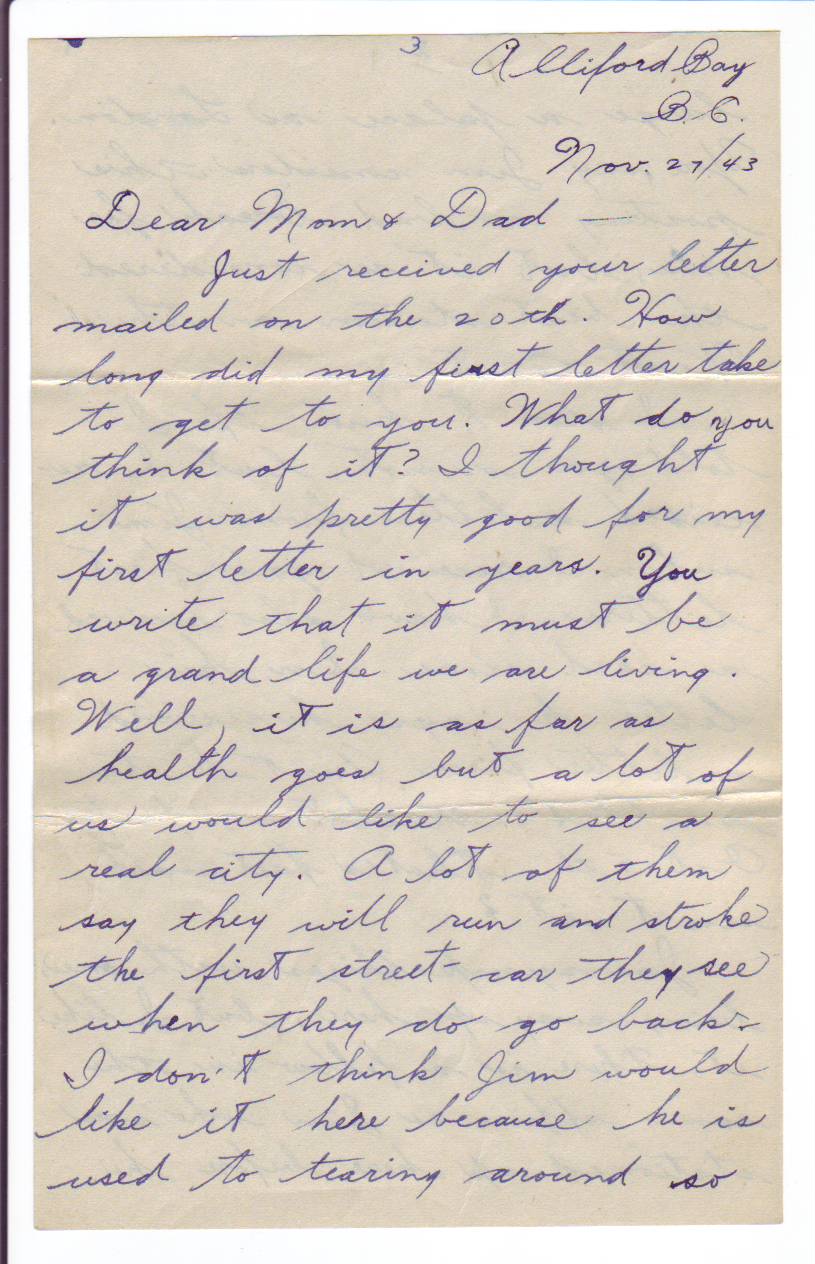 3
Alliford Bay
B.C.
Nov. 27/43
Dear Mom & Dad —
Just received your letter
mailed on the 20th. How
long did my first letter take
to get to you. What do you
think of it? I thought
it was pretty good for my
first letter in years. You
write that it must be
a grand life we are living.
Well, it is as far as
health goes but a lot of
us would like to see a
real city. A lot of them
say they will run and stroke
the first street-car they see
when they do go back.
I don't think Jim would
like it here because he is
used to tearing around so